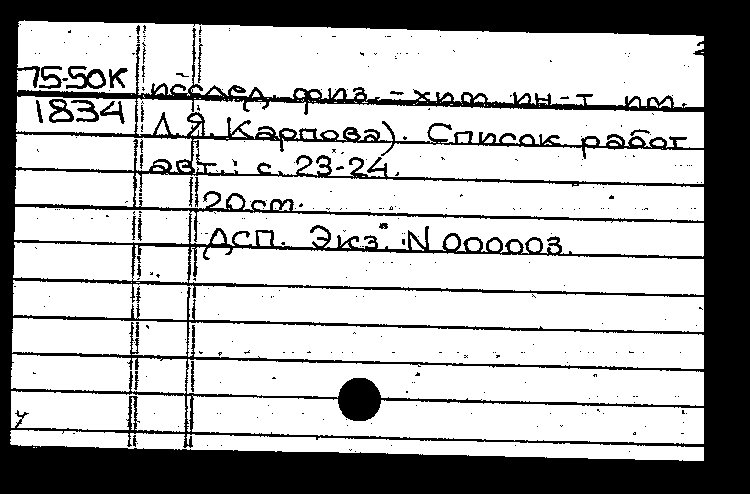 2
75-50К исслед. физ.-хим. ин-т им.
1834 Л.Я. Карпова). Список работ
авт.: с. 23-24.
20 см.
ДСП. Экз. N 000003.
у